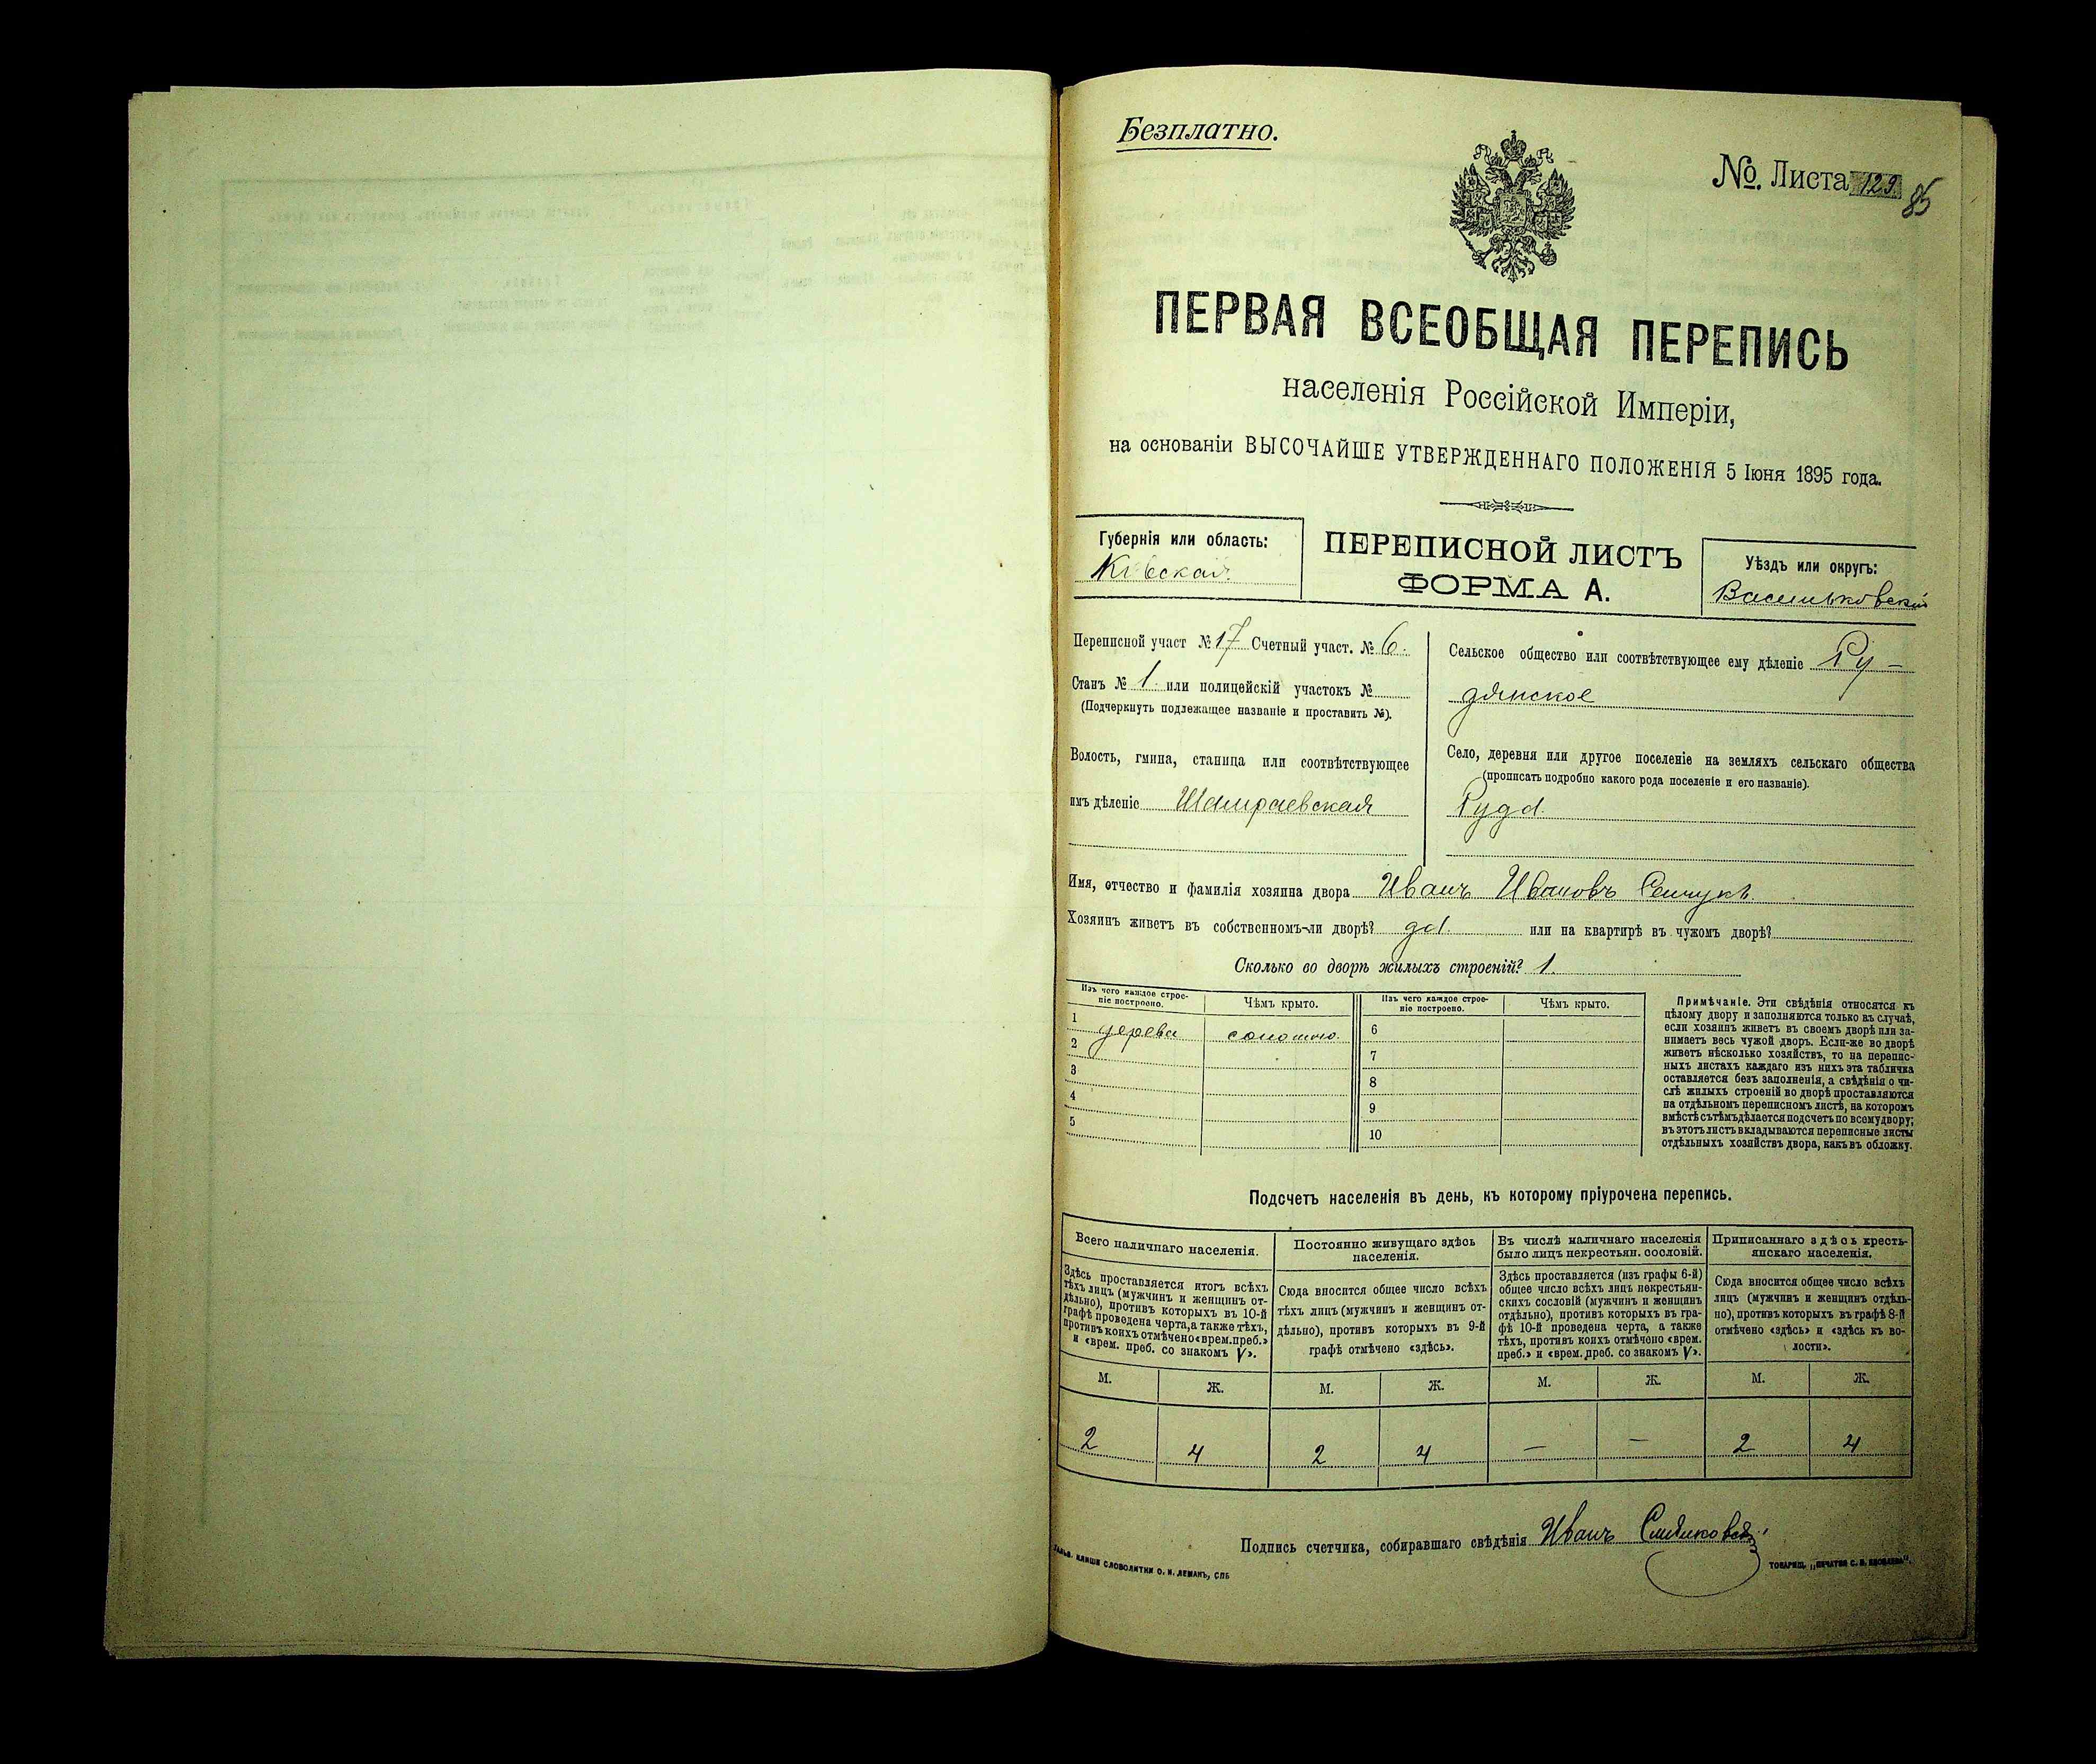 Безплатно.
№. Листа 129.
85
ПЕРВАЯ ВСЕОБЩАЯ ПЕРЕПИСЬ
населенія Россійской Имперіи,
на основаніи ВЫСОЧАЙШЕ УТВЕРЖДЕННАГО ПОЛОЖЕНІЯ 5 Іюня 1895 года.
Губернія или область:
Кіевская.
ПЕРЕПИСНОЙ ЛИСТЪ
ФОРМА А.
Уѣздъ или округъ:
Васильковскій
Переписной участ № 17 Счетный участ. № 6.
Станъ № 1. или полицейскій участокъ №
(Подчеркнуть подлежащее названіе и проставить №).
Волость, гмина, станица или соотвѣтствующее
имъ дѣленіе Шамраевская
Сельское общество или соотвѣтствующее ему дѣленіе Ру-
дянское
Село, деревня или другое поселеніе на земляхъ сельскаго общества
(прописать подробно какого рода поселеніе и его названіе).
Руда.
Имя, отчество и фамилія хозяина двора Иванъ Ивановъ
Хозяинъ живетъ въ собственномъ-ли дворѣ? да. или на квартирѣ въ чужомъ дворѣ?
Сколько во дворѣ жилыхъ строеній? 1.
Изъ чего каждое строе-
ніе построено.
Чѣмъ крыто.
Изъ чего каждое строе-
ніе построено.
Чѣмъ крыто.
1 дерева соломою. 6
2 7
3 8
4 9
5 10
Примѣчаніе. Эти свѣдѣнія относятся къ
цѣлому двору и заполняются только въ случаѣ,
если хозяинъ живетъ въ своемъ дворѣ или за-
нимаетъ весь чужой дворъ. Если-же во дворѣ
живетъ нѣсколько хозяйствъ, то на перепис-
ныхъ листахъ каждаго изъ нихъ эта табличка
оставляется безъ заполненія, а свѣдѣнія о чи-
слѣ жилыхъ строеній во дворѣ проставляются
на отдѣльномъ переписномъ листѣ, на которомъ
вмѣстѣ съ тѣмъ дѣлается подсчетъ по всему двору;
въ этотъ листъ вкладываются переписные листы
отдѣльныхъ хозяйствъ двора, какъ въ обложку.
Подсчетъ населенія въ день, къ которому пріурочена перепись.
Всего наличнаго населенія.
Здѣсь проставляется итогъ всѣхъ
тѣхъ лицъ (мужчинъ и женщинъ от-
дѣльно), противъ которыхъ въ 10-й
графѣ проведена черта, а также тѣхъ,
противъ коихъ отмѣчено «врем. преб.»
и «врем. преб. со знакомъ V».
Постоянно живущаго здѣсь
населенія.
Сюда вносится общее число всѣхъ
тѣхъ лицъ (мужчинъ и женщинъ от-
дѣльно), противъ которыхъ въ 9-й
графѣ отмѣчено «здѣсь».
Въ числѣ наличнаго населенія
было лицъ некрестьян. сословій.
Здѣсь проставляется (изъ графы 6-й)
общее число всѣхъ лицъ некрестьян-
скихъ сословій (мужчинъ и женщинъ
отдѣльно), противъ которыхъ въ гра-
фѣ 10-й проведена черта, а также
тѣхъ, противъ коихъ отмѣчено «врем.
преб.» и «врем. преб. со знакомъ V».
Приписаннаго здѣсь кресть-
янскаго населенія.
Сюда вносится общее число всѣхъ
лицъ (мужчинъ и женщинъ отдѣль-
но), противъ которыхъ въ графѣ 8-й
отмѣчено «здѣсь» и «здѣсь къ во-
лости».
М. Ж. М. Ж. М. Ж. М. Ж.
2 4 2 4 — — 2 4
Подпись счетчика, собиравшаго свѣдѣнія Иванъ
КЛИШЕ СЛОВОЛИТНИ О. И. ЛЕМАНЪ, СПБ
ТОВАРИЩ. „ПЕЧАТНЯ С. П. ЯКОВЛЕВА".